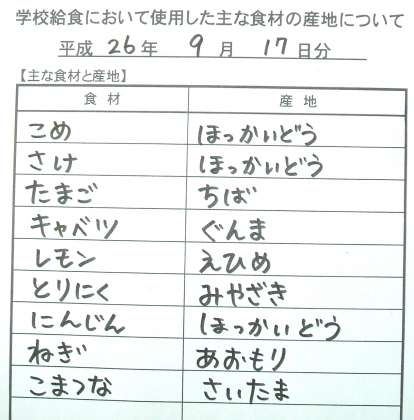 学校給食において使用した主な食材の産地について
平成 26 年 9 月 17 日分
【主な食材と産地】
食材 産地
こめ ほっかいどう
さけ ほっかいどう
たまご ちば
キャベツ ぐんま
レモン えひめ
とりにく みやざき
にんじん ほっかいどう
ねぎ あおもり
こまつな さいたま